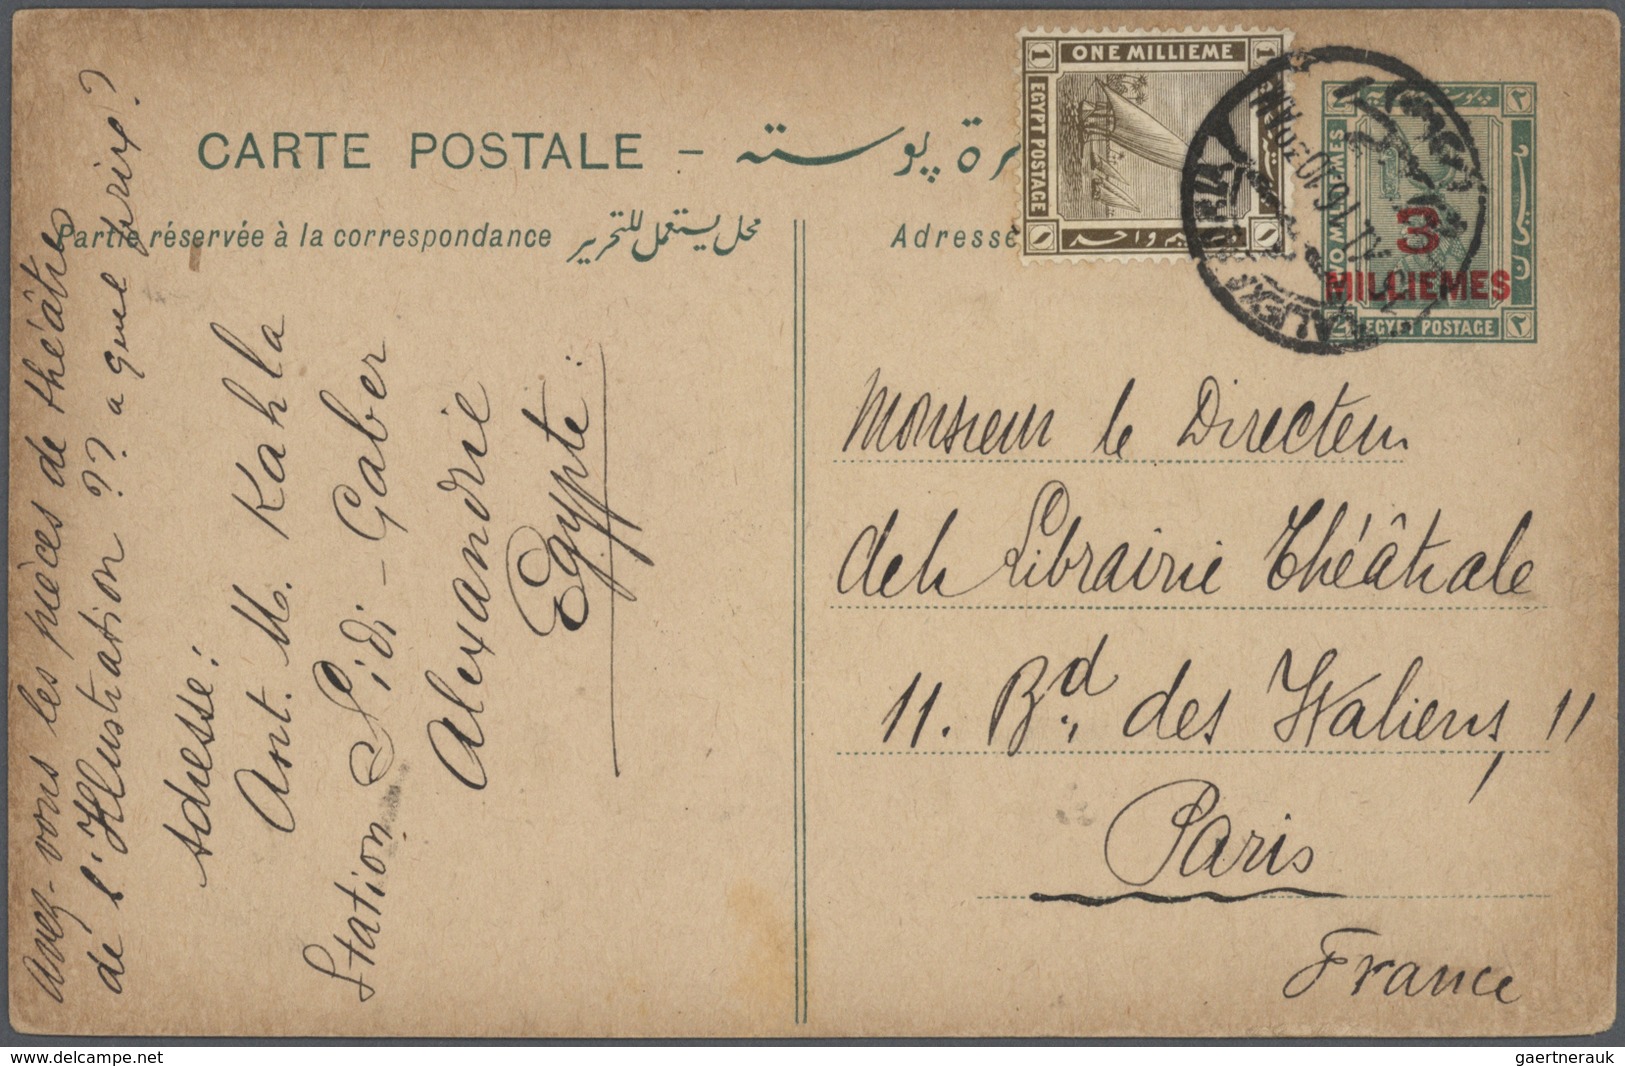 CARTE POSTALE –
پوسته
Partie réservée à la correspondance
محل يستعمل للتحرير
Adresse
1 ONE MILLIEME 1
EGYPT POSTAGE
TWO MILLIEMES
3
MILLIEMES
EGYPT POSTAGE
Avez-vous les pièces de théâtre
de l'Illustration ?? a quel prix?
Adresse:
Ant. M. Kahla
Station Sidi-Gaber
Alexandrie
Egypte
Monsieur le Directeur
de la Librairie Théâtrale
11. Bd. des Italiens, 11
Paris
France
delcampe.net
gaertnerauk